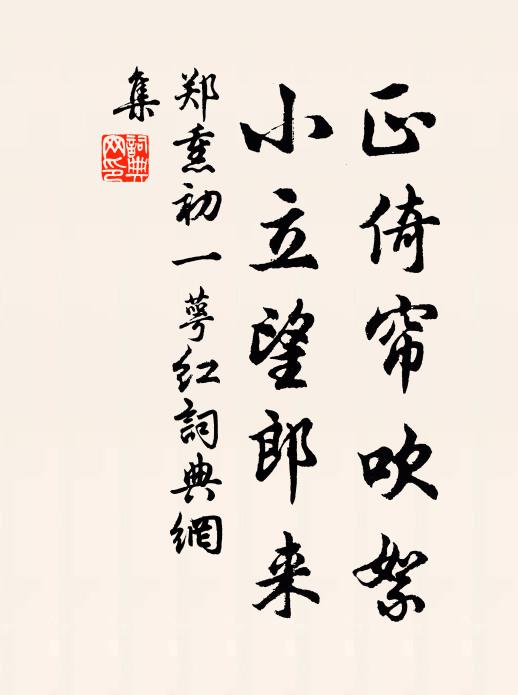 正倚帘吹絮
小立望郎来
郑熏初一萼红詞典網
集
詞典网印